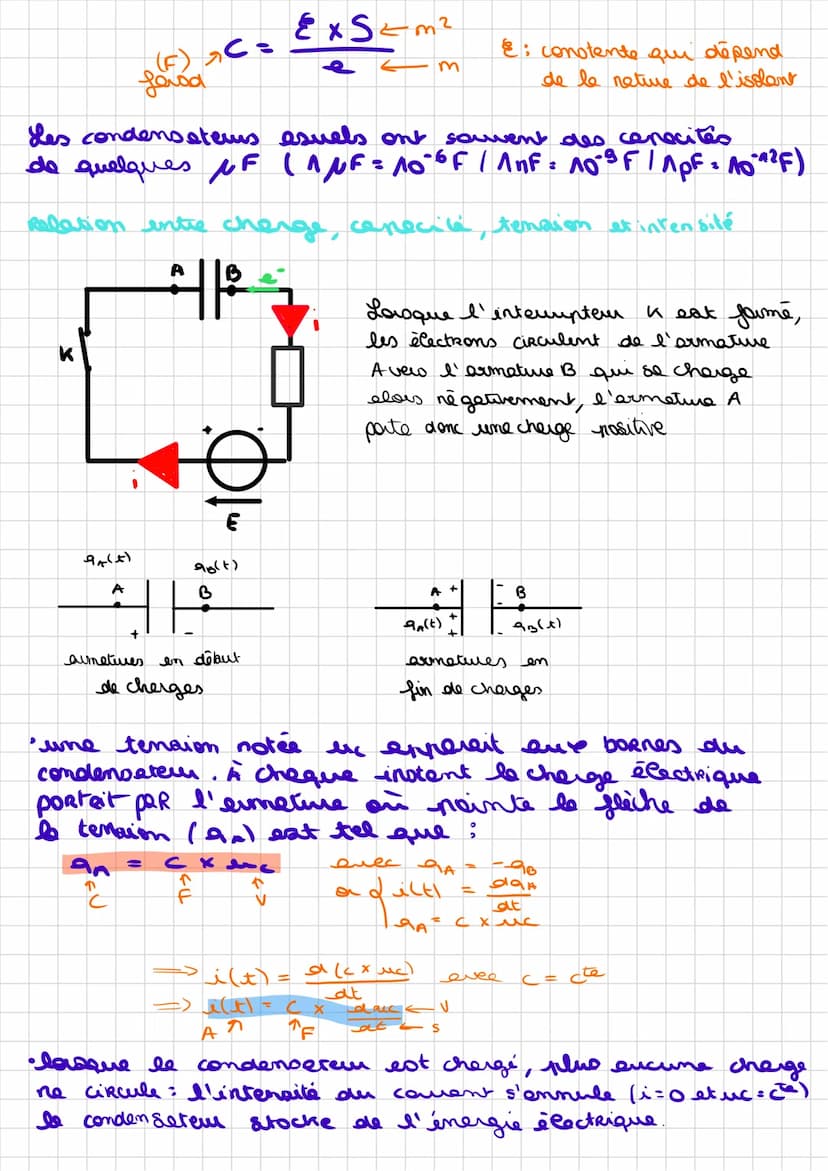 C = (Ɛ x S) / e
← m²
← m
(F)
farad
Ɛ : constante qui dépend
de la nature de l'isolant
Les condensateurs usuels ont souvent des capacités
de quelques µF ( 1 µF = 10⁻⁶ F / 1 nF = 10⁻⁹ F / 1 pF = 10⁻¹² F)
Relation entre charge, capacité, tension et intensité
A B e⁻
i
K
+ -
i
E
Lorsque l'interrupteur K est fermé,
les électrons circulent de l'armature
A vers l'armature B qui se charge
alors négativement, l'armature A
porte donc une charge positive
qA(t) qB(t)
A B
+ -
armatures en début
de charges
A + - B
qA(t) + - qB(t)
+ -
armatures en
fin de charges
• une tension notée uc apparait aux bornes du
condensateur. À chaque instant la charge électrique
portait par l'armature où pointe la flèche de
la tension (qA) est tel que :
qA = C x uc
↑ ↑ ↑
C F V
avec qA = -qB
or { i(t) = dqA/dt
qA = C x uc
=> i(t) = d(C x uc)/dt avec C = cte
=> i(t) = C x duc/dt ← V
← s
A ↑ ↑ F
• lorsque le condensateur est chargé, plus aucune charge
ne circule : l'intensité du courant s'annule (i=0 et uc = cte)
le condensateur stocke de l'énergie électrique.